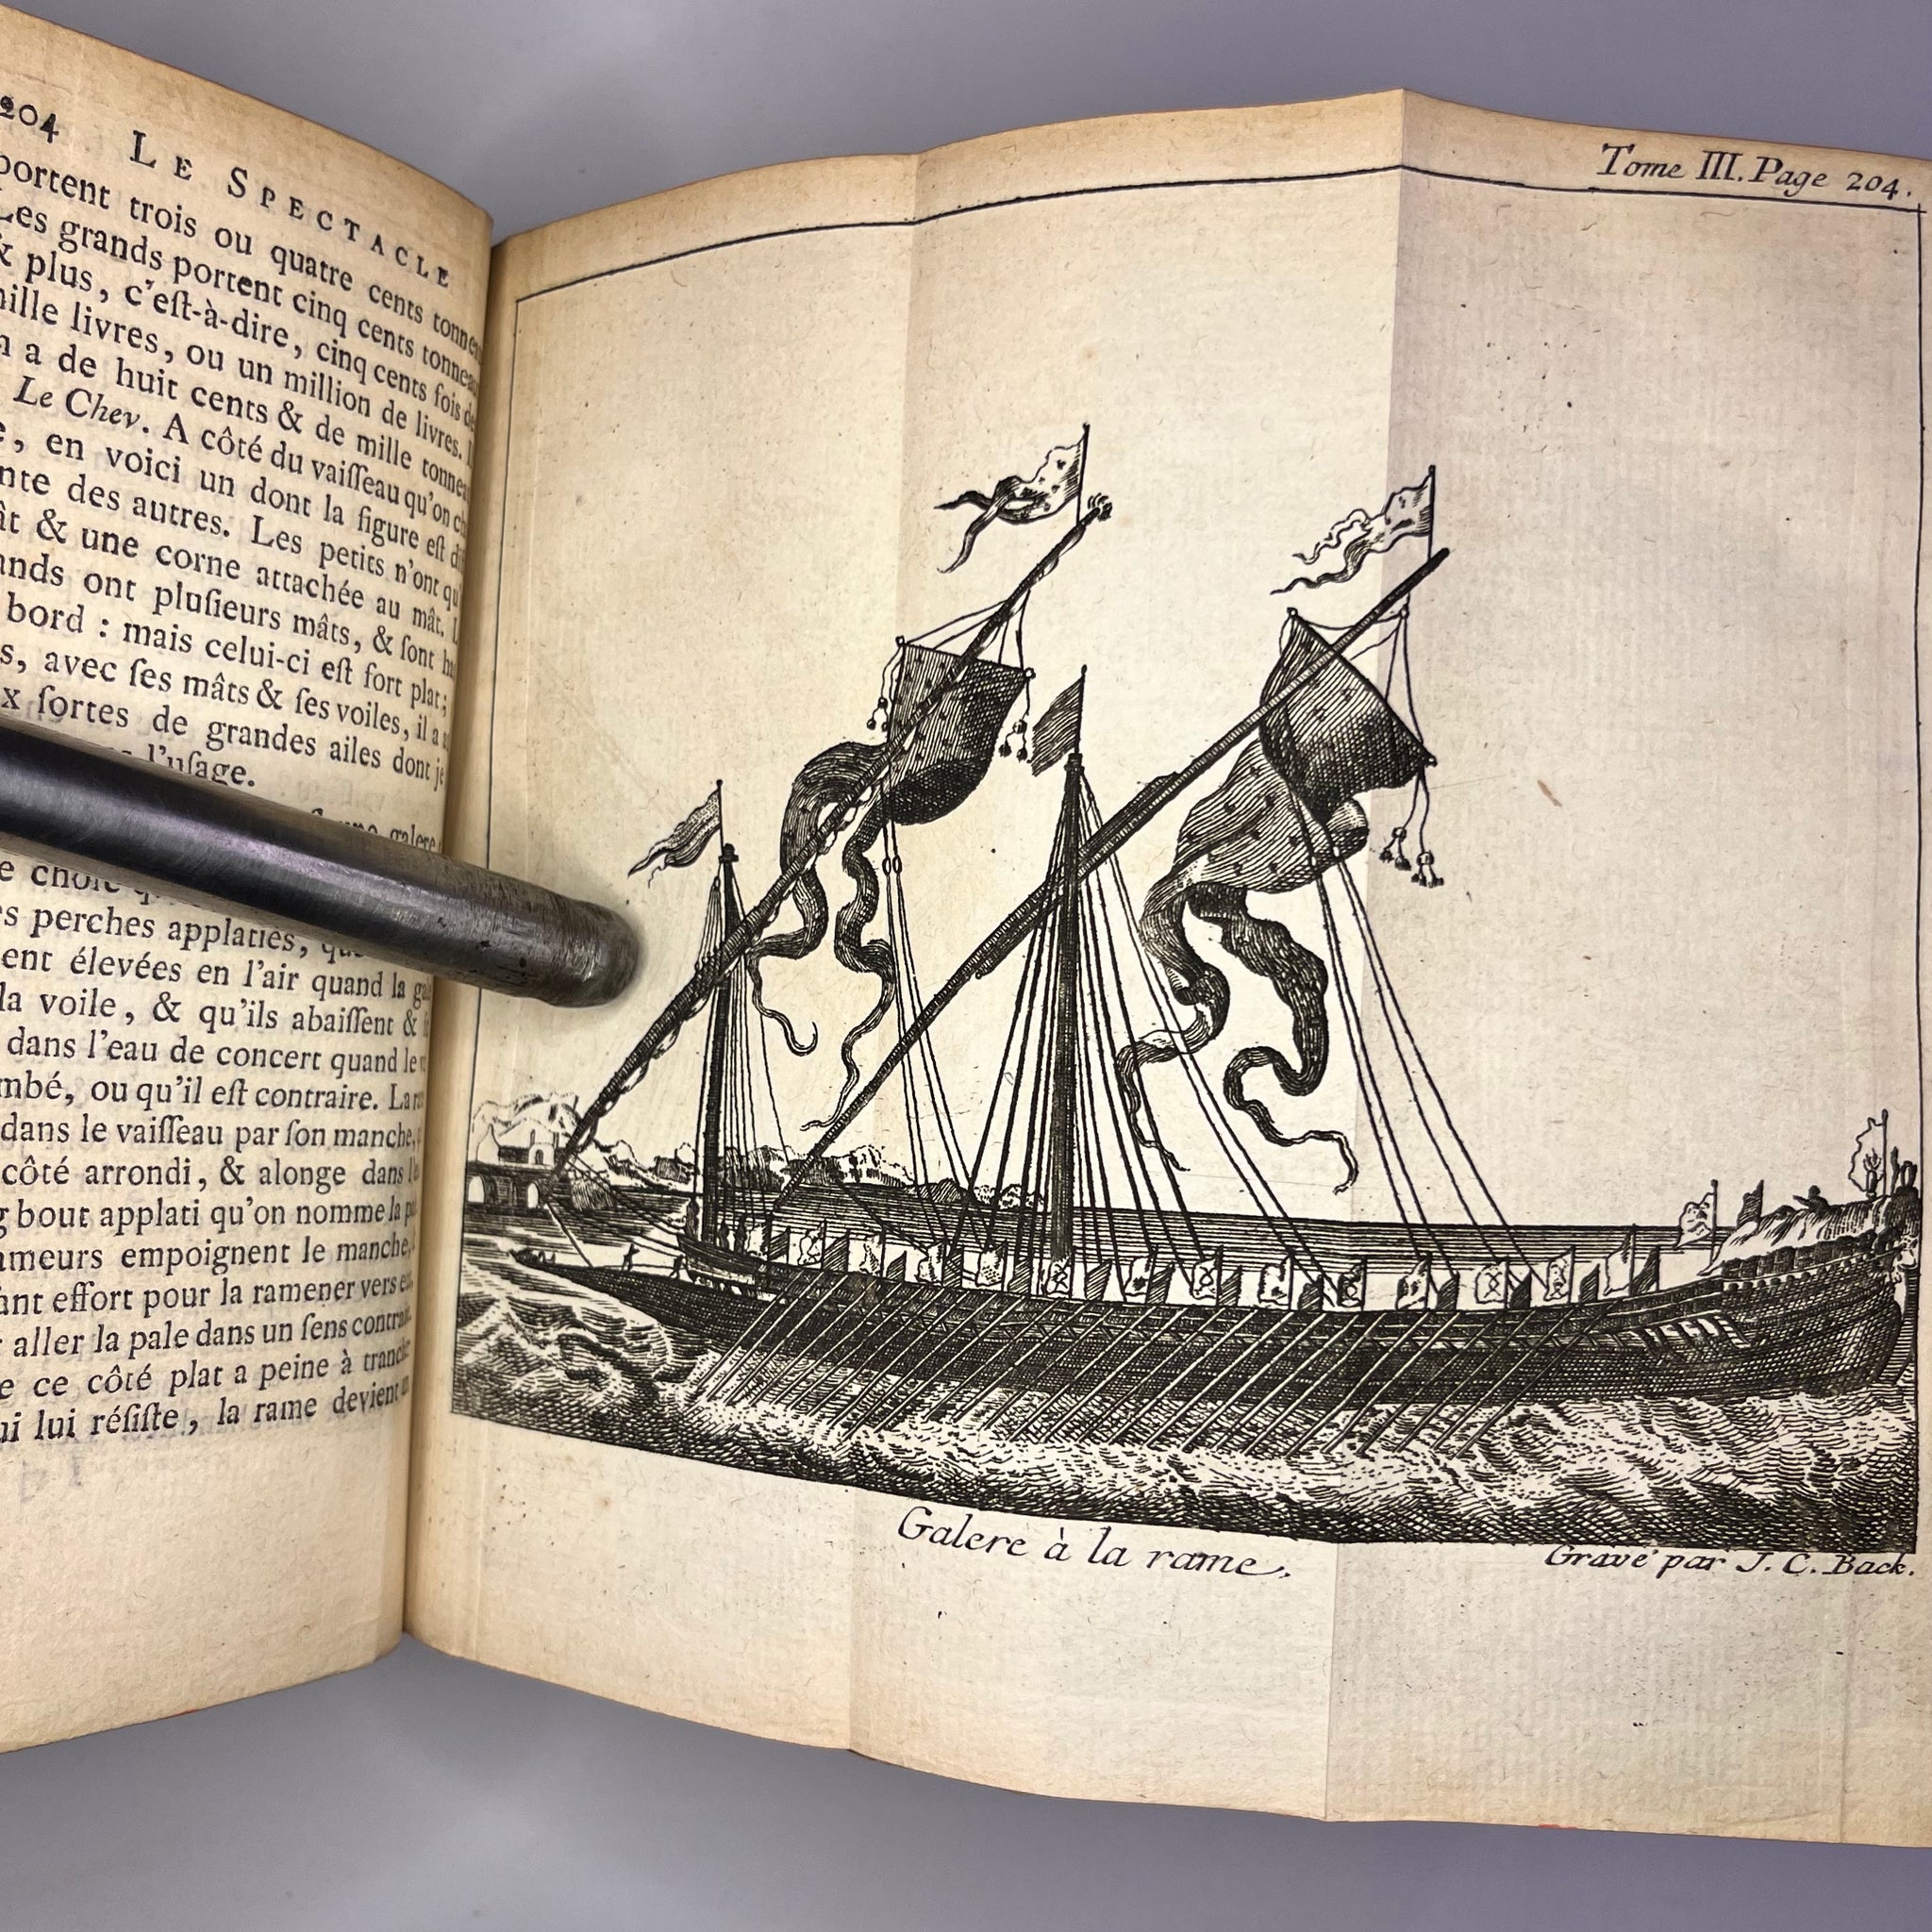 204 LE SPECTACLE
portent trois ou quatre cents
Les grands portent cinq cents
& plus, c'eſt-à-dire, cinq cents fois
livres, ou un million de livres.
a de huit cents & de mille
Le Chev. A côté du vaiſſeau qu'on
, en voici un dont la figure eſt
des autres. Les petits n'ont
& une corne attachée au mât.
ont pluſieurs mâts, & ſont
bord : mais celui-ci eſt fort plat;
, avec ſes mâts & ſes voiles, il a
ſortes de grandes ailes dont
l'uſage.
galere
perches applaties,
élevées en l'air quand la
la voile, & qu'ils abaiſſent &
dans l'eau de concert quand le
, ou qu'il eſt contraire. La
dans le vaiſſeau par ſon manche,
côté arrondi, & alonge dans
bout applati qu'on nomme la
empoignent le manche,
effort pour la ramener vers
aller la pale dans un ſens
ce côté plat a peine à
lui réſiſte, la rame devient
Tome III. Page 204.
Galere à la rame.
Gravé par J. C. Back.